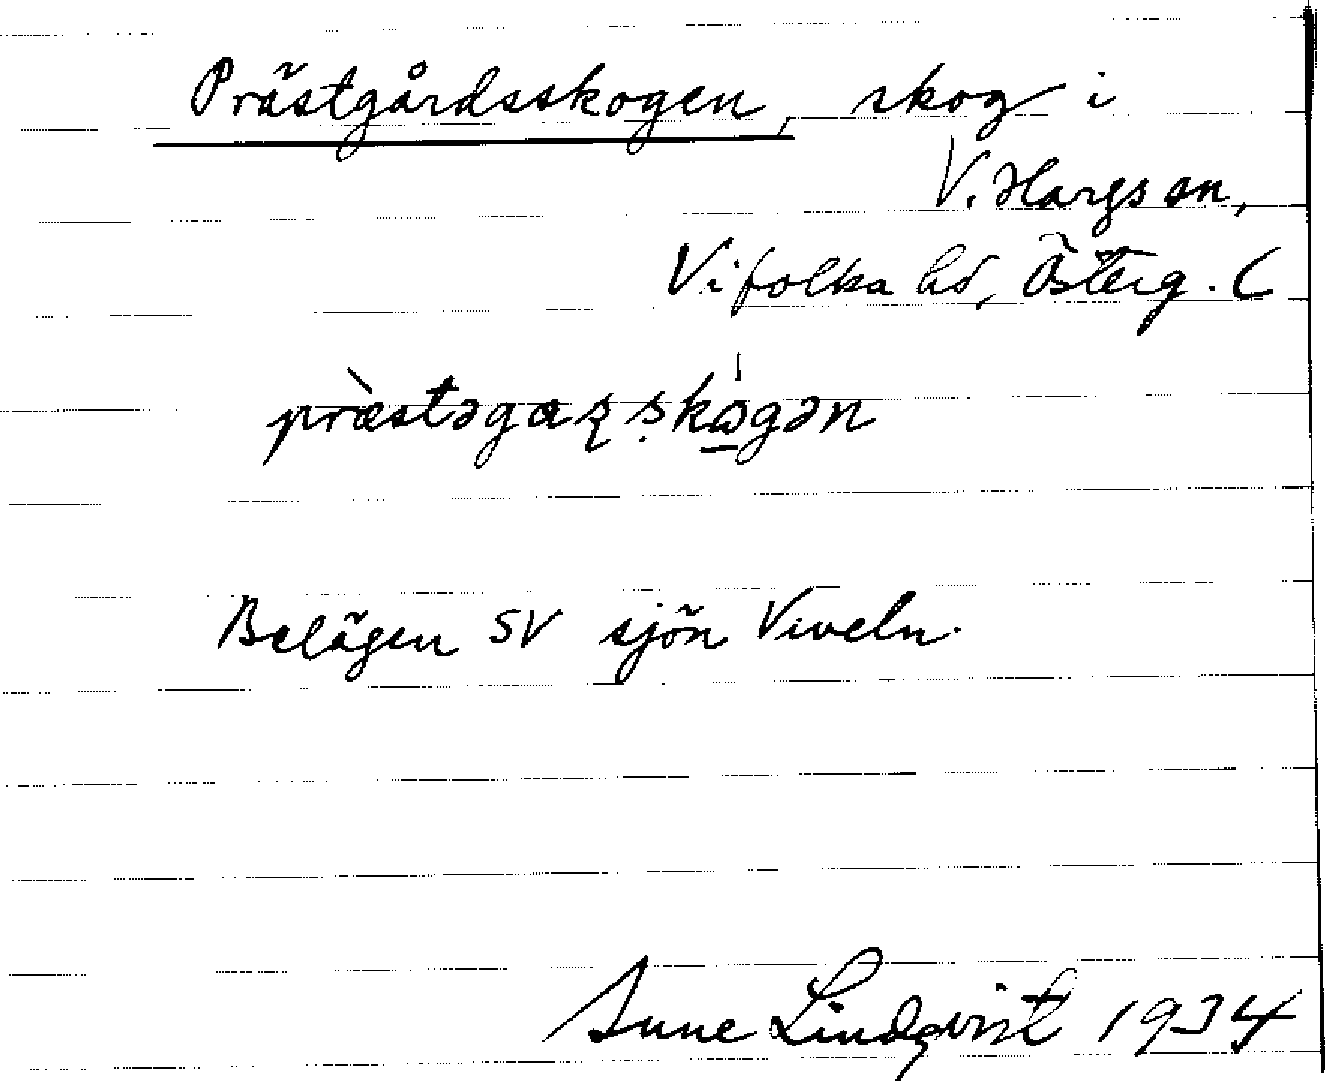 Prästgårdsskogen, skog i
V. Hargs sn,
Vifolka hd, Österg. (
præ̀stəgaʂ ṣkɷ̲́gən
Belägen SV sjön Viveln.
Sune Lindqvist 1934